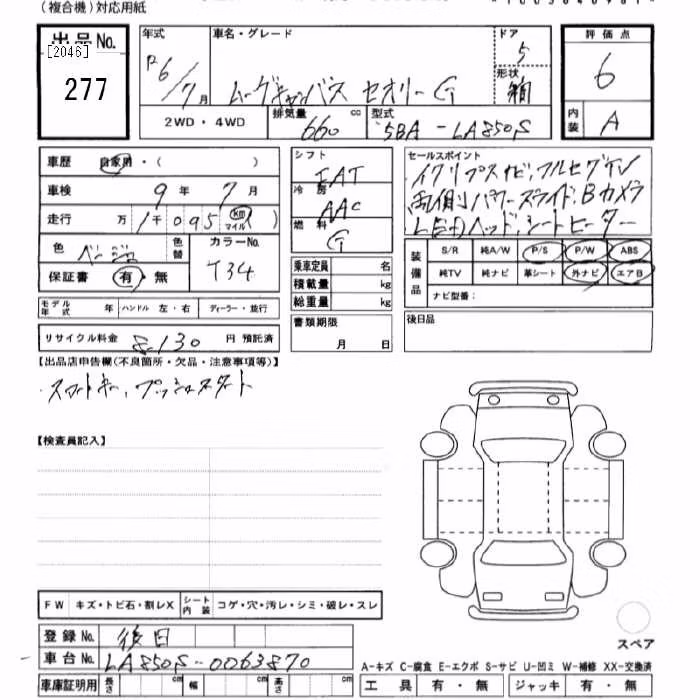 (複合機)対応用紙
出品No. 年式 車名・グレード ドア 評価点
[2046] 5
277 R6/7月 ムーヴキャンバス セオリーG 形状 箱 6
2WD・4WD 排気量 660 cc 型式 5BA-LA850S 内装 A
車歴 自家用・( )
車検 9年 7月
走行 万 1千 095 (km マイル)
色 ベージュ 色替 カラーNo. T34
保証書 有・無
モデル年式 年 ハンドル 左・右 ディーラー・並行
リサイクル料金 8,130 円 預託済
シフト FAT
冷房 AAC
燃料 G
乗車定員 名
積載量 kg
総重量 kg
書類期限
月 日
セールスポイント
・イクリプスナビ、フルセグTV
両側パワースライド、Bカメラ
LEDヘッド、シートヒーター
装備品 S/R 純A/W P/S P/W ABS
純TV 純ナビ 革シート 外ナビ エアB
ナビ型番:
後日品
【出品店申告欄(不良箇所・欠品・注意事項等)】
・スマートキー、プッシュスタート
【検査員記入】
FW キズ・トビ石・割レX シート内装 コゲ・穴・汚レ・シミ・破レ・スレ
登録No. 後日
車台No. LA850S-0063870
車庫証明用 長さ cm 幅 cm 高さ cm
スペア
A-キズ C-腐食 E-エクボ S-サビ U-凹ミ W-補修 XX-交換済
工具 有・無 ジャッキ 有・無